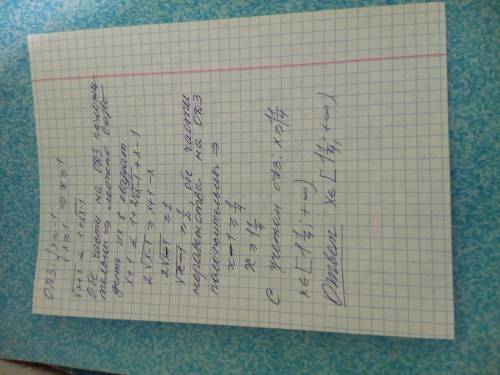 ОДЗ: { x ≥ -1
x ≥ 1 ⇒ x ≥ 1
√x+1 ≤ 1+√x-1
Обе части на ОДЗ положи-
тельны ⇒ можно возво-
дить их в квадрат
x+1 ≤ 1+2√x-1 + x-1
2√x-1 ≥ x+1-x
2√x-1 ≥ 1
√x-1 ≥ 1/2, обе части
неравенства на ОДЗ
положительны ⇒
x-1 ≥ 1/4
x ≥ 1 1/4
С учетом ОДЗ: x ≥ 1 1/4
x ∈ [1 1/4; +∞)
Ответ x ∈ [1 1/4; +∞)